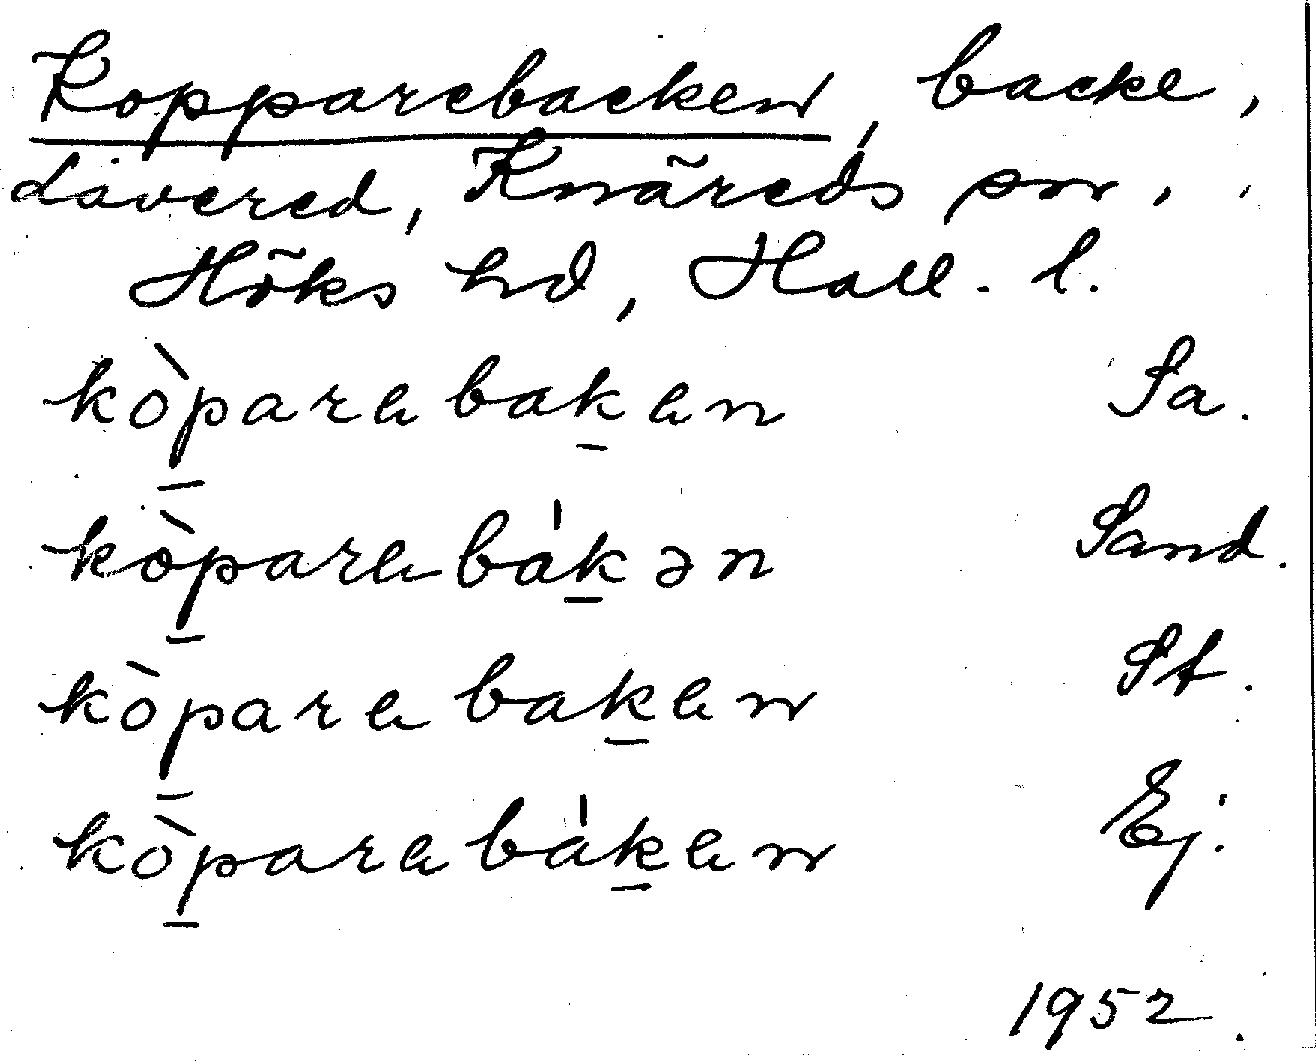 Kopparebacken, backe,
Lavered, Knäreds sn,
Höks hd, Hall. l.
kò̱parabaḵan Sa.
kò̱paraba̍ḵən Sand.
kò̱parabaḵan St.
kò̱paraba̍ḵan Ej.
1952.